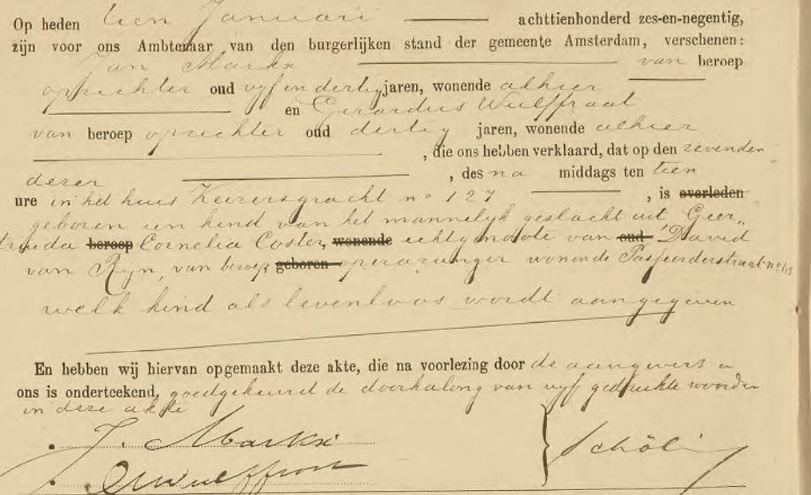 Op heden tien Januari achttienhonderd zes-en-negentig,
zijn voor ons Ambtenaar van den burgerlijken stand der gemeente Amsterdam, verschenen:
Jan Markx van beroep
oprichter oud vijf en dertig jaren, wonende alhier
en Gerardus Wulffraat
van beroep oprichter oud dertig jaren, wonende alhier
, die ons hebben verklaard, dat op den zevenden
dezer , des na middags ten tien
ure in het huis Keizersgracht no 127 , is overleden
geboren een kind van het mannelijk geslacht uit Geer„
truida beroep Cornelia Coster, wonende echtgenoote van oud David
van Ryn, van beroep geboren operazanger wonende Paspeerderstraat no
welk kind als levenloos wordt aangegeven
En hebben wij hiervan opgemaakt deze akte, die na voorlezing door de aangevers en
ons is onderteekend, goedgekeurd de doorhaling van vijf gedrukte woorden
in deze akte
J. Markx
Wulffraat Schöli